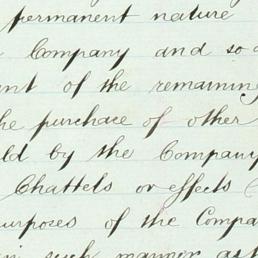 permanent nature
Company and so
of the remaining
the purchace of other
by the Company
Chattels or effects
purposes of the Compa
in such manner as th